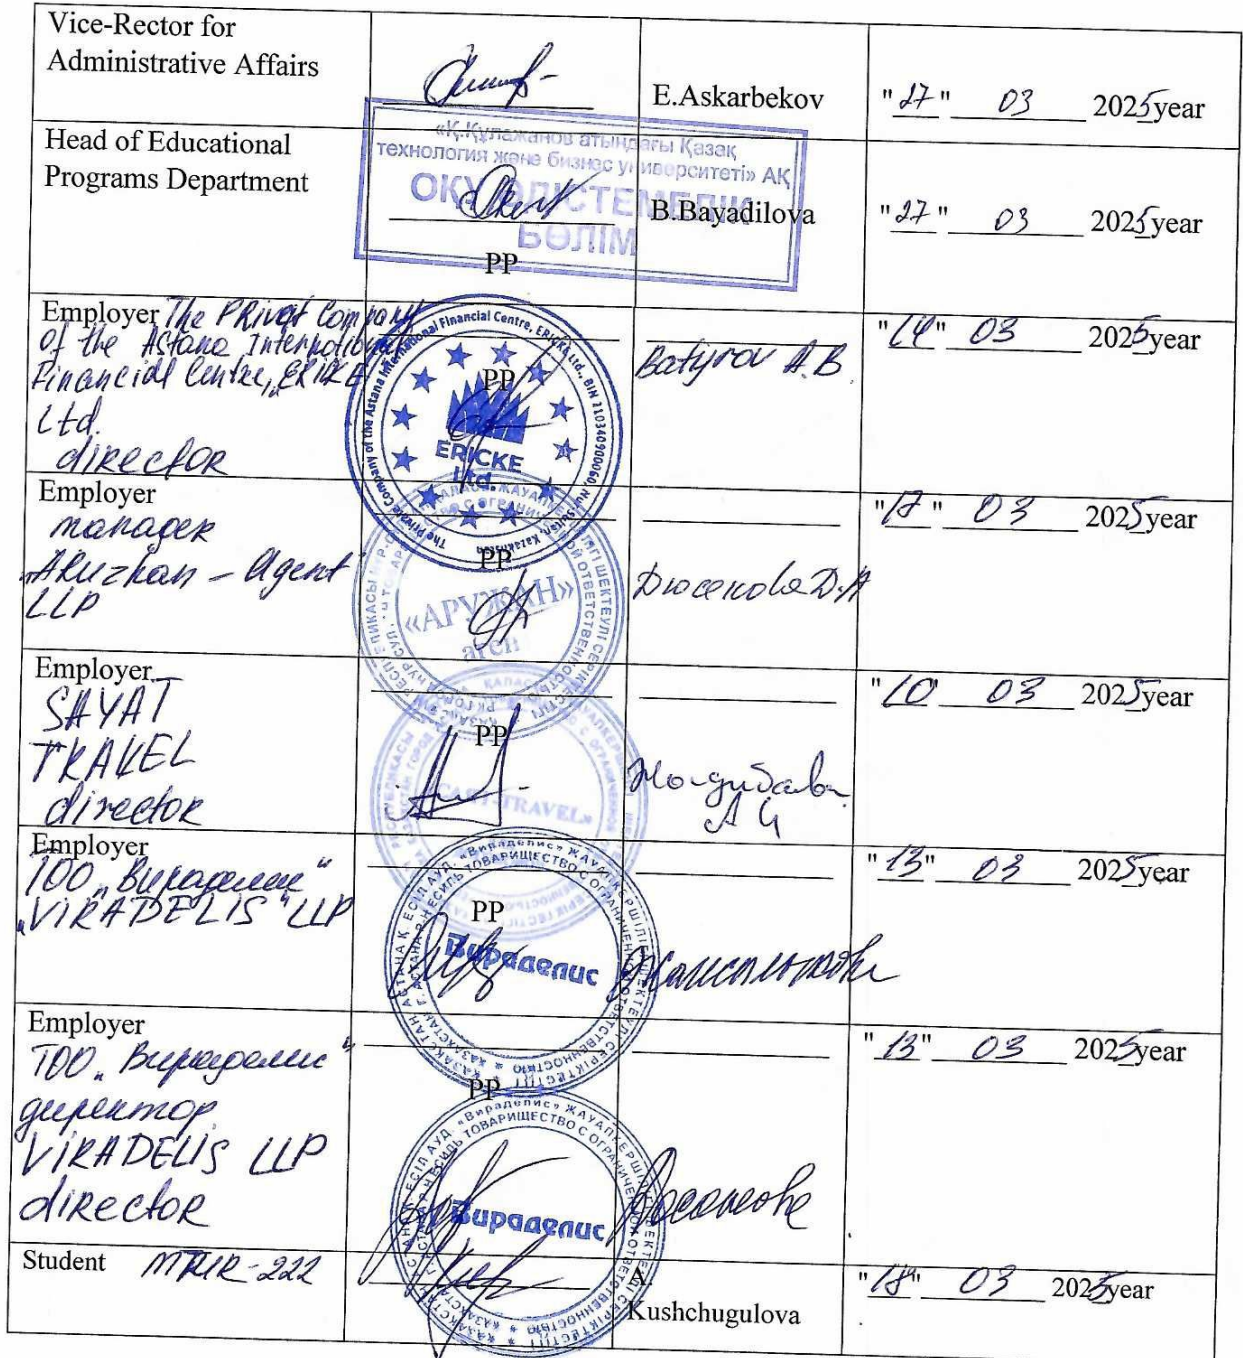 Vice-Rector for
Administrative Affairs
E.Askarbekov
"27" 03 2025year
Head of Educational
Programs Department
«Қ.Құлажанов атындағы Қазақ
технология және бизнес университеті» АҚ
ОҚУ ӘДІСТЕМЕЛІК
БӨЛІМ
B.Bayadilova
"27" 03 2025year
PP
Employer The Privat Company
of the Astana International
Financial Centre, ERICKE
Ltd.
director
The Private Company of the Astana International Financial Centre, ERICKE Ltd., BIN 210340900060, Nur-Sultan, Kazakhstan
PP
ERICKE
Ltd.
Batyrov A.B
"14" 03 2025year
Employer
manager
„Aruzhan - Agent"
LLP
PP
«АРУЖАН»
аген
Дюсенова Д.А
"17" 03 2025year
Employer
SAYAT
TRAVEL
director
PP
"10" 03 2025year
Employer
ТОО „Вираделис"
„VIRADELIS" LLP
PP
Вираделис
"13" 03 2025year
Employer
ТОО „Вираделис"
директор
VIRADELIS LLP
director
PP
Вираделис
"13" 03 2025year
Student
A.
Kushchugulova
"18" 03 2025year